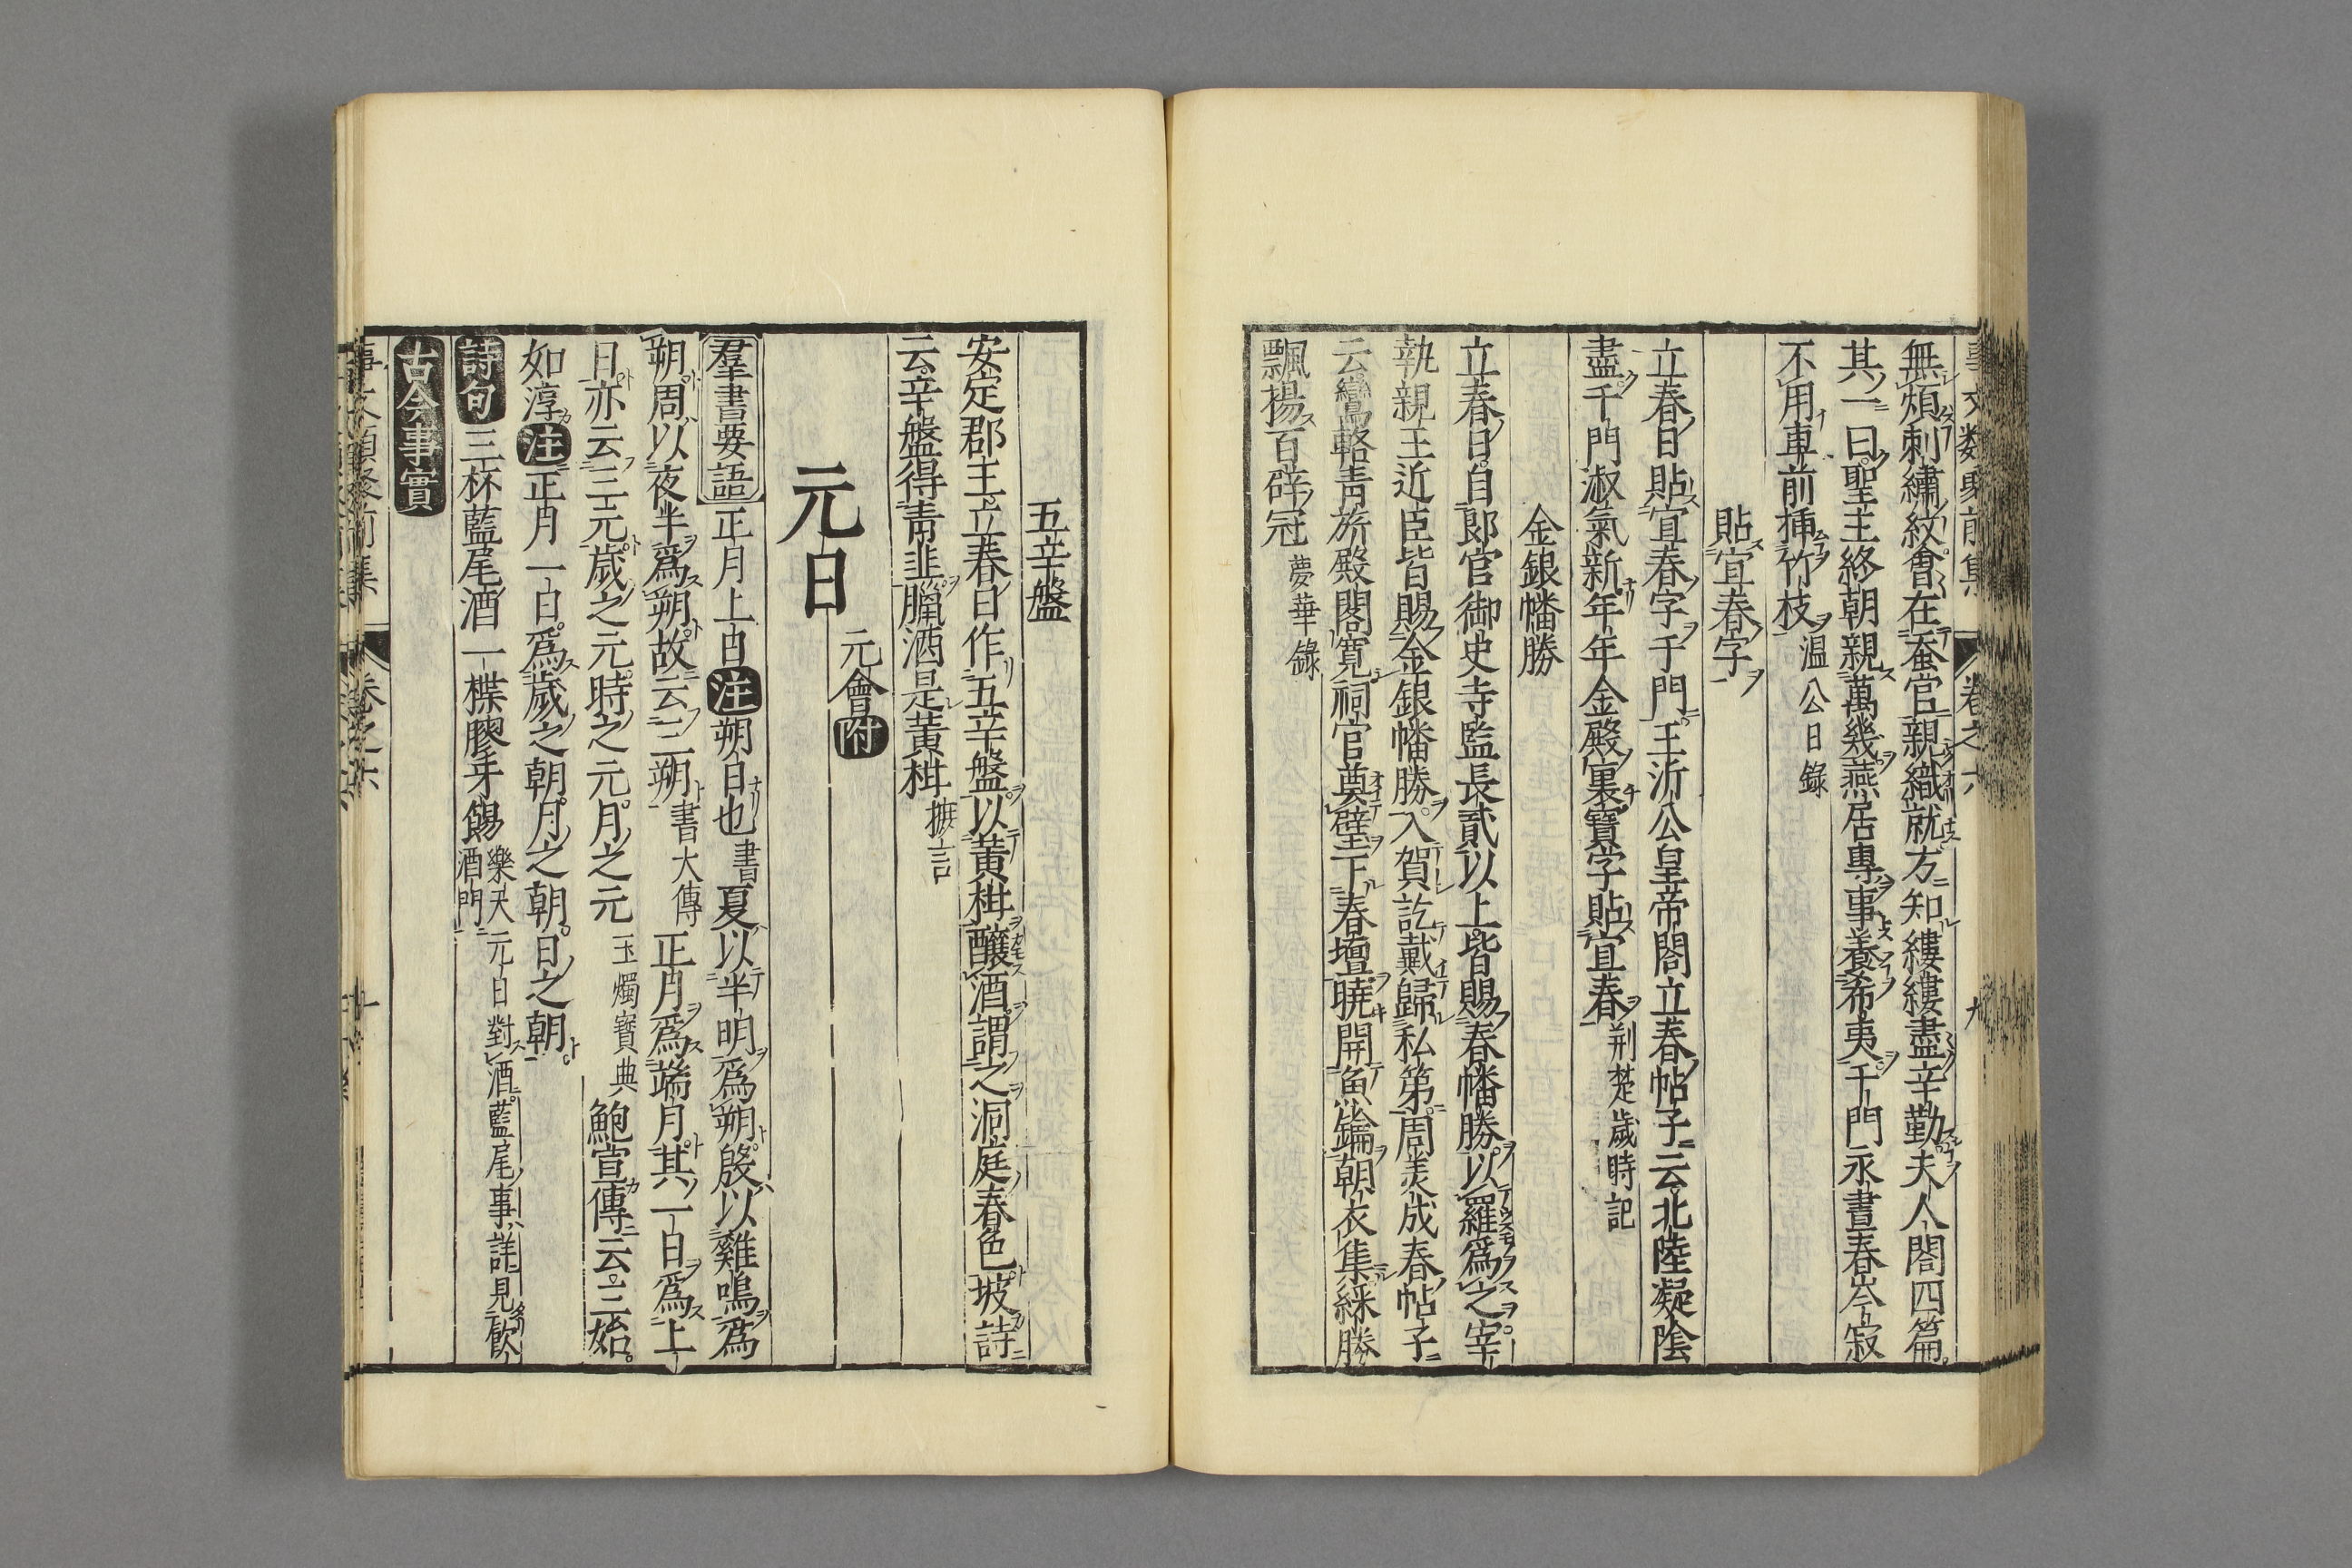 無煩刺繡紋會在蚕官親織就方知縷縷盡辛勤夫人閤四篇
其一曰聖主終朝親萬幾燕居專事養希夷千門永晝春岑寂
不用車前揷竹枝 温公日錄
貼宜春字
立春日貼宜春字于門王沂公皇帝閤立春帖子云北陸凝陰
盡千門淑氣新年年金殿裏寶字貼宜春 荆楚歲時記
金銀幡勝
立春日自郞官御史寺監長貳以上皆賜春幡勝以羅爲之宰
執親王近臣皆賜金銀幡勝入賀訖戴歸私第周美成春帖子
云鸞輅靑旂殿閣寬祠官奠璧下春壇曉開魚鑰朝衣集綵勝
飄揚百辟冠 夢華錄
五辛盤
安定郡王立春日作五辛盤以黃柑釀酒謂之洞庭春色坡詩
云辛盤得靑韭臘酒是黃柑 摭言
元日
元會附
羣書要語 正月上日注朔日也書夏以半明爲朔殷以雞鳴爲
朔周以夜半爲朔故云三朔 書大傳 正月爲端月其一日爲上
日亦云三元歲之元時之元月之元 玉燭寶典 鮑宣傳云三始
如淳注正月一日爲歲之朝月之朝日之朝
詩句 三杯藍尾酒一楪膠牙餳 樂天 元日對酒藍尾事詳見飮
酒門
古今事實